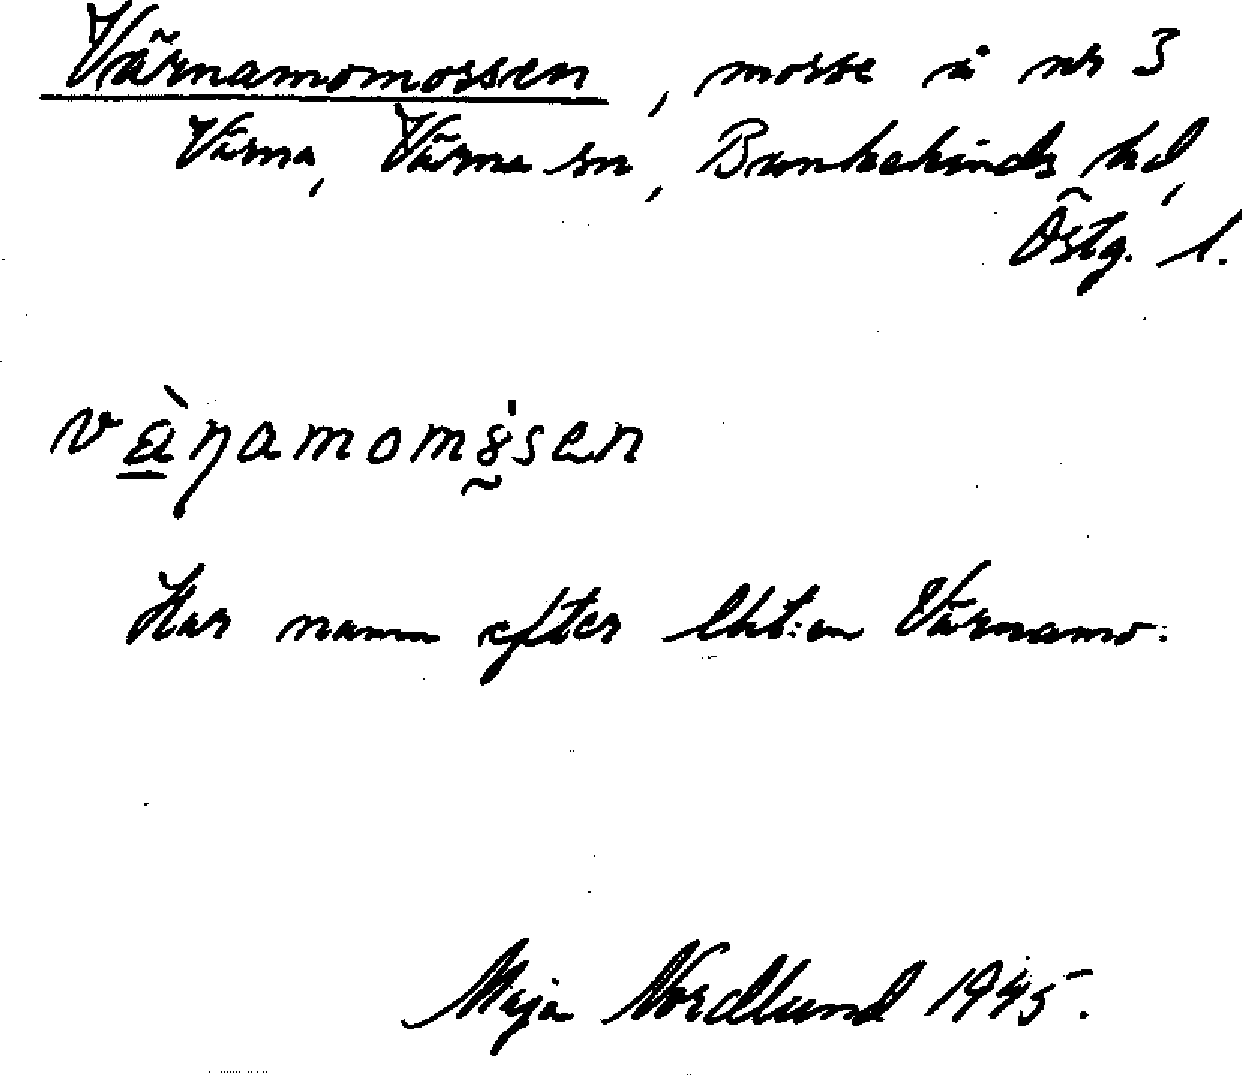 Värnamomossen, mosse å nr 3
Värna, Värna sn, Bankekinds hd,
Östg. l.
vàɳamomşsen
Har namn efter lht:en Värnamo.
Maja Nordlund 1945.